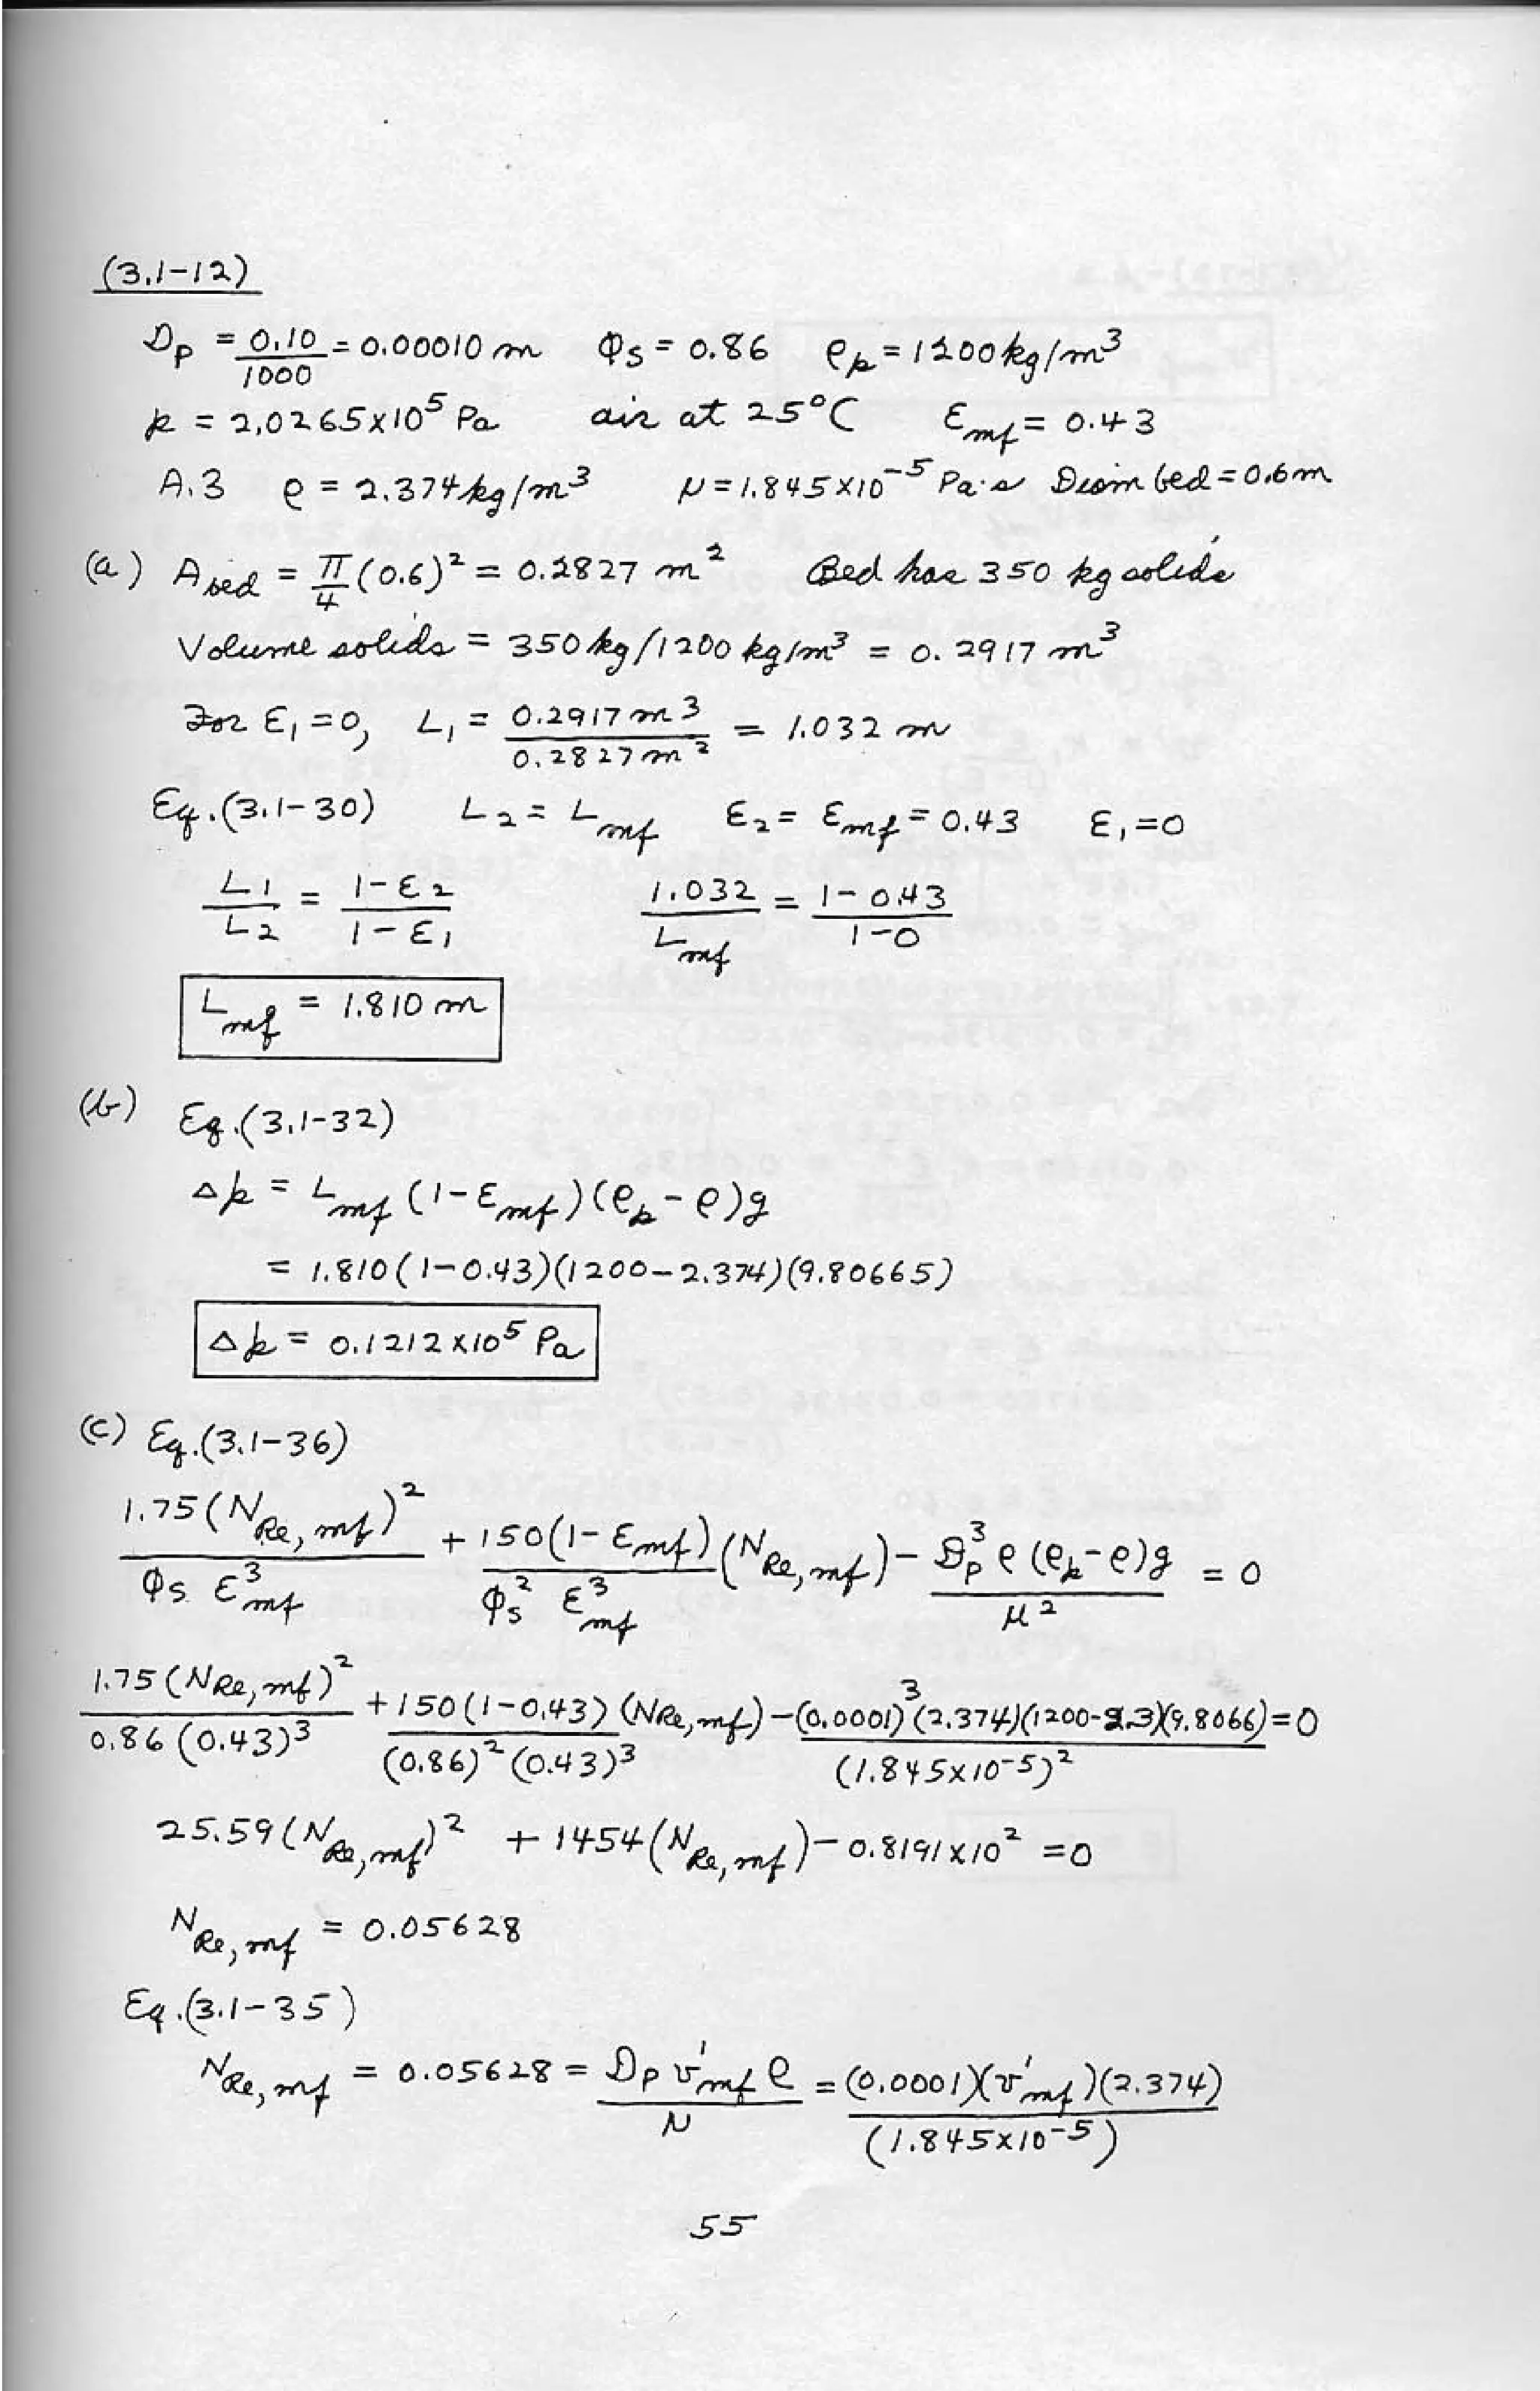 (3.1-12)
Dp = 0.10/1000 = 0.00010 m   Φs = 0.86   ρp = 1200 kg/m³
p = 2.0265×10⁵ Pa   air at 25°C   εmf = 0.43
A.3   ρ = 2.374 kg/m³   μ = 1.845×10⁻⁵ Pa·s   Diam bed = 0.6 m
(a) Abed = π/4 (0.6)² = 0.2827 m²   Bed has 350 kg solids
Volume solids = 350 kg/1200 kg/m³ = 0.2917 m³
For ε₁ = 0, L₁ = 0.2917 m³/0.2827 m² = 1.032 m
Eq.(3.1-30)   L₂ = Lmf   ε₂ = εmf = 0.43   ε₁ = 0
L₁/L₂ = (1-ε₂)/(1-ε₁)   1.032/Lmf = (1-0.43)/(1-0)
Lmf = 1.810 m
(b) Eq.(3.1-32)
Δp = Lmf (1-εmf)(ρp-ρ)g
= 1.810(1-0.43)(1200-2.374)(9.80665)
Δp = 0.1212×10⁵ Pa
(c) Eq.(3.1-36)
1.75(NRe,mf)²/(Φs ε³mf) + 150(1-εmf)/(Φs² ε³mf) (NRe,mf) - Dp³ρ(ρp-ρ)g/μ² = 0
1.75(NRe,mf)²/(0.86(0.43)³) + 150(1-0.43)/((0.86)²(0.43)³) (NRe,mf) - (0.0001)³(2.374)(1200-2.3)(9.8066)/(1.845×10⁻⁵)² = 0
25.59(NRe,mf)² + 1454(NRe,mf) - 0.8191×10² = 0
NRe,mf = 0.05628
Eq.(3.1-35)
NRe,mf = 0.05628 = Dp v'mf ρ/μ = (0.0001)(v'mf)(2.374)/(1.845×10⁻⁵)
55